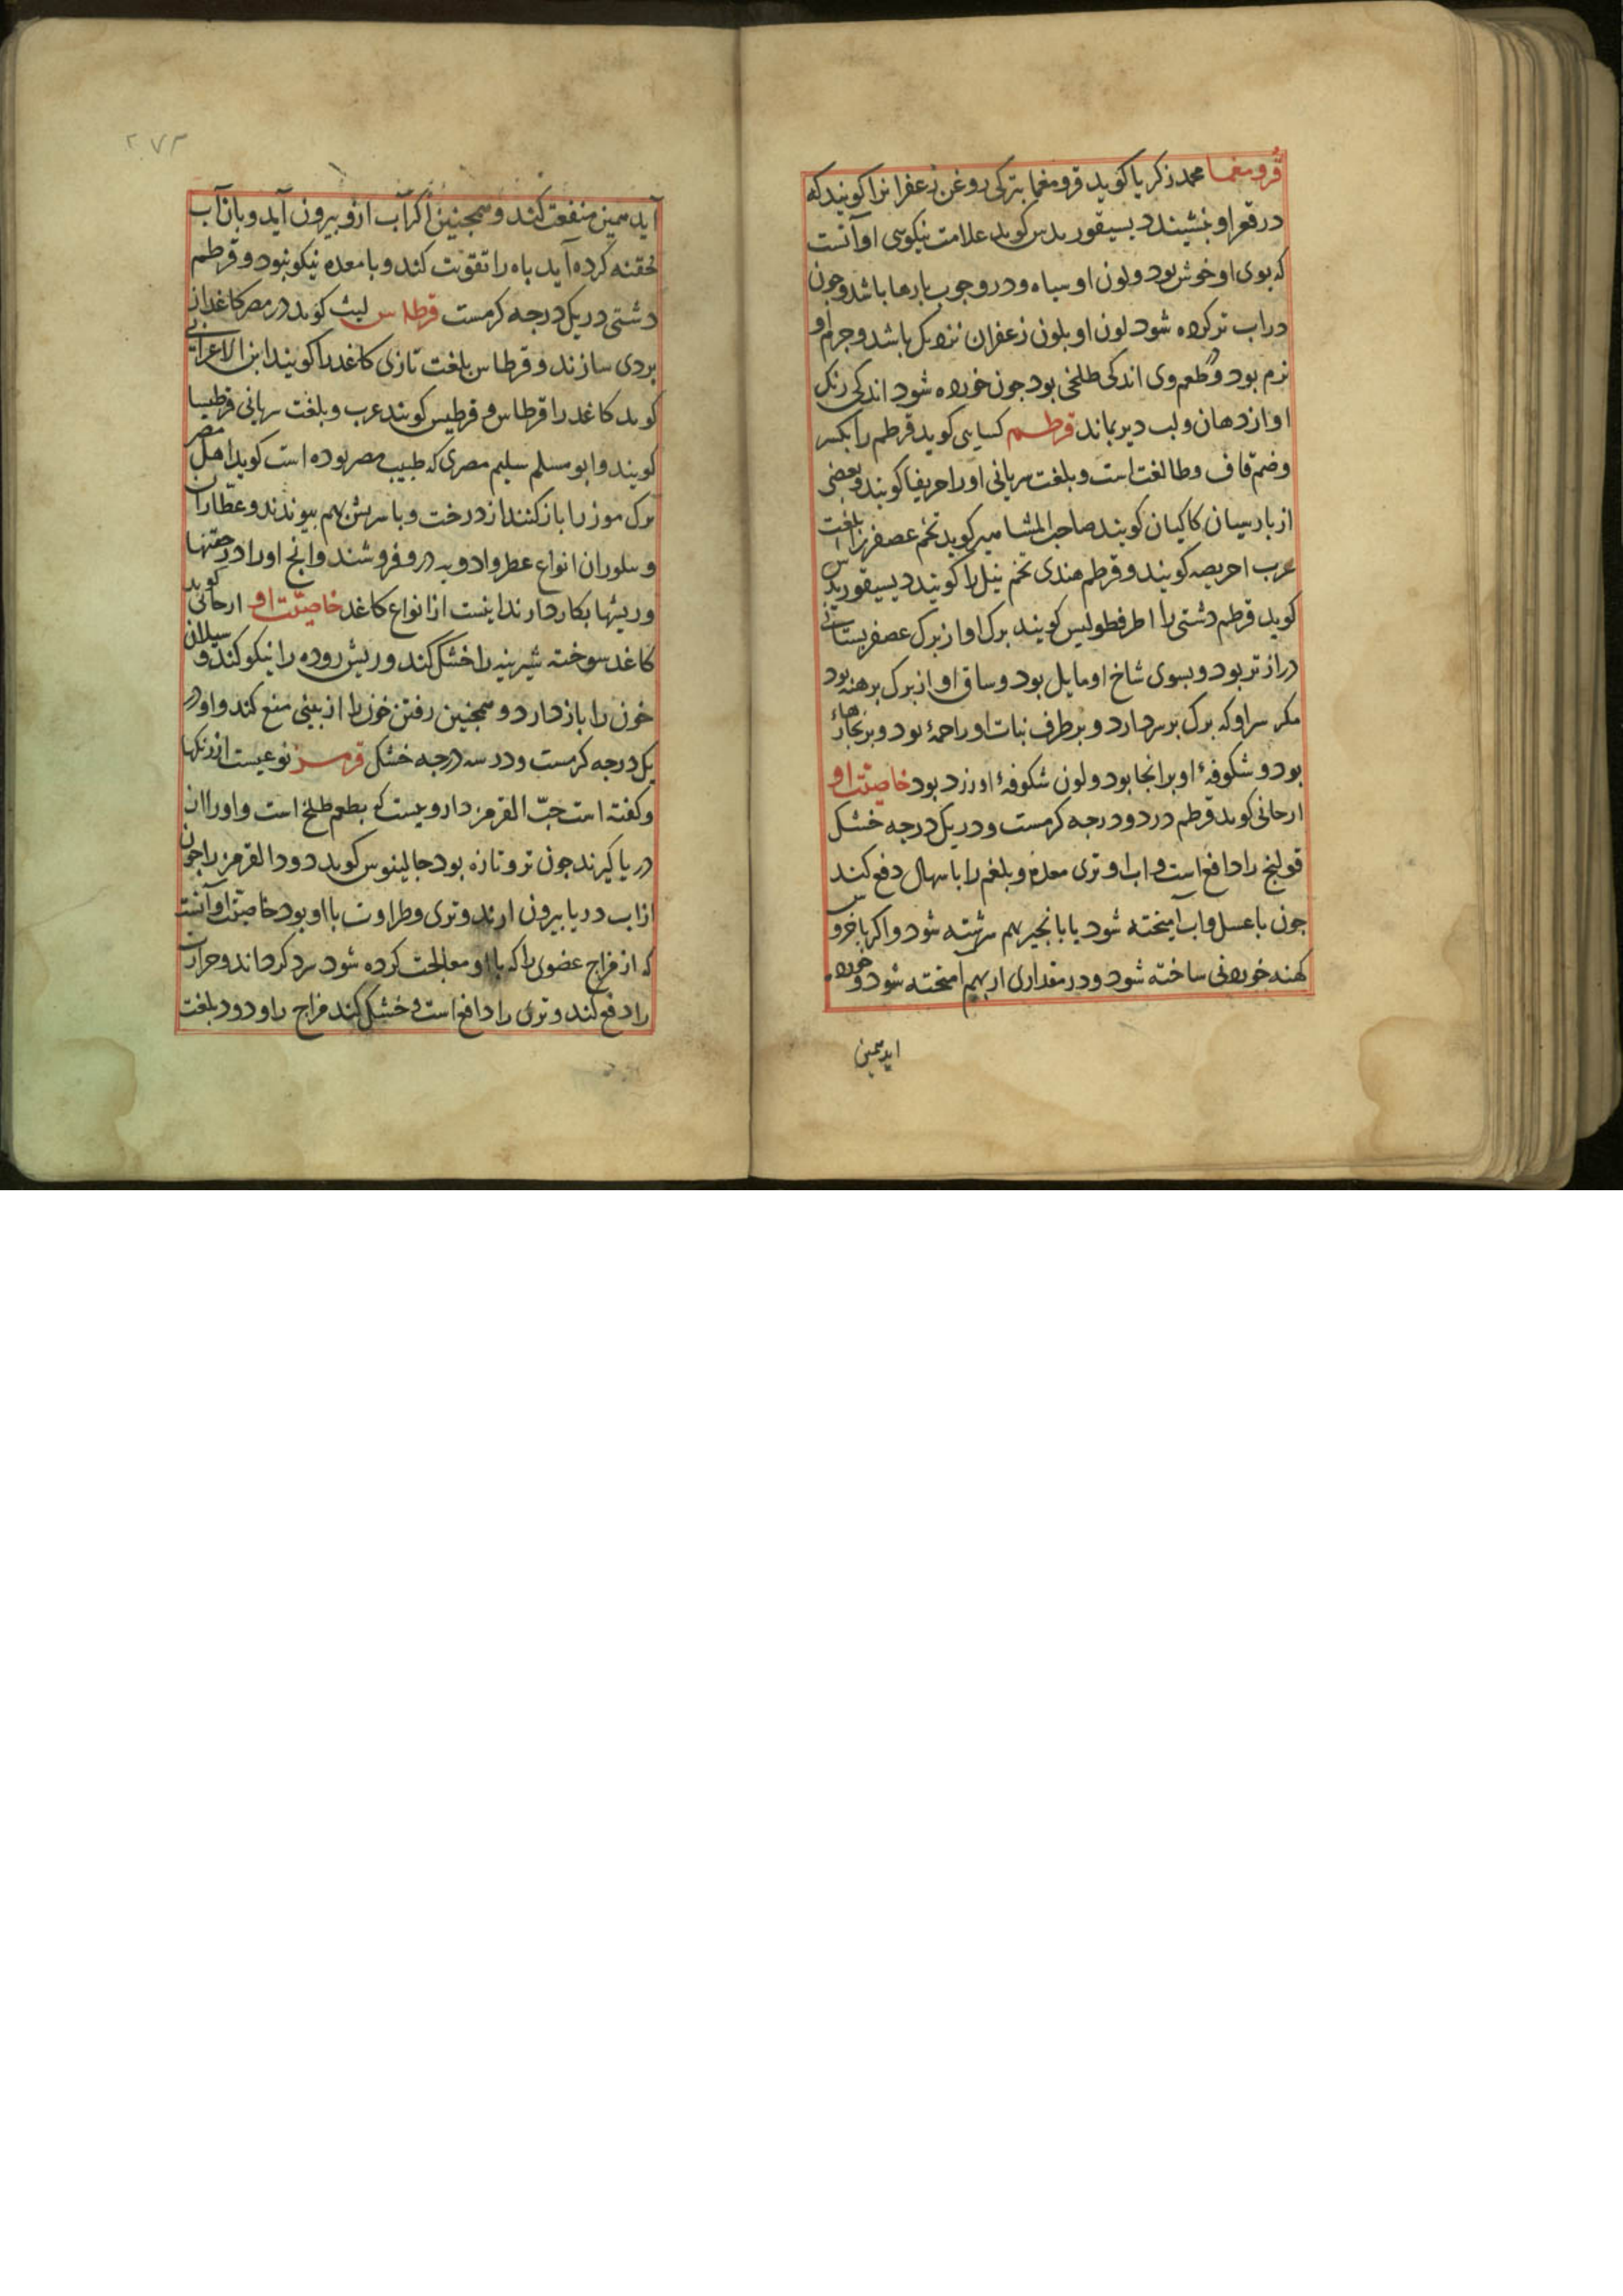 قرومغما محمد زکریا کوید قرومغما بترکی روغن زعفرانرا کویند که
در قعر او بنشیند دیسیقوریدس کوید علامت نیکوی او آنست
که بوی او خوش بود و لون او سیاه و درو چوب پارها باشد وجون
در اب تر کرده شود لون او بلون زعفران نزدیک باشد و جرم او
نرم بود و طعم وی اندکی طلخی بود جون خورده شود اندکی رنک
او از دهان و لب دیر بماند قرطم کسایی کوید قرطم را بکسر
وضم قاف وطا لغت است و بلغت سریانی او را حریفا کویند و بعضی
از بارسیان کاکیان کویند صاحب المشامیر کوید تخم عصفر را بلغت
عرب احریصه کویند و قرطم هندی تخم نیل را کویند دیسیقوریدس
کوید قرطم دشتی را اطرفطولیس کویند برک او از برک عصفر بستانی
درازتر بود و بسوی شاخ او مایل بود و ساق او از برک برهنه بود
مکر سر او که برک بر سر دارد و بر طرف نبات او را بود و بر
بود و شکوفۀ او بر انجا بود و لون شکوفۀ او زرد بود خاصیّت او
ارجانی کوید قرطم در دو درجه کرمست و در یک درجه خشک
قولنج را دافع است و اب و تری معده و بلغم را باسهال دفع کند
جون با عسل و اب آمیخته شود یا با نجیر بهم سرشته شود و اکر با خروس
کهنه خوردنی ساخته شود و در مقداری ار بهم امیخته شود و خورده
اید همین
۲۷۳
آید همین منفعت کند و همجنین اکر آب ازو بیرون آید و بان آب
حقنه کرده آید باه را تقویت کند و با معده نیکو نبود و قرطم
دشتی در یک درجه کرمست قرطاس لیث کوید در مصر کاغد از
بردی سازند و قرطاس بلغت تازی کاغد را کویند ابن الاعرابی
کوید کاغد را قرطاس و قرطیس کویند عرب و بلغت سریانی قرطیسا
کویند و ابو مسلم سلیم مصری که طبیب مصر بوده است کوید اهل مصر
برک موز را باز کنند از درخت و با سریش بهم بیوندند و عطّاران
و سلوران انواع عطر و ادویه درو فروشند وانج او را در حقنها
و ریشها بکار دارند اینست از انواع کاغد خاصیّت او ارجانی کوید
کاغد سوخته شیرینه را خشک کند و ریش روده را نیکو کند و سیلان
خون را باز دارد و همجنین رفتن خون را از بینی منع کند و او در
یک درجه کرمست و در سه درجه خشک قرمز نوعیست از رنکها
و کفته است حبّ القرمز دارویست که بطعم طلخ است و او را از
دریا کیرند جون تر و تازه بود جالینوس کوید دود القرمز را جون
از اب دریا بیرون ارند و تری و طراوت با او بود خاصیّت او آنست
که از مزاج عضوی را که با او معالجت کرده شود سرد کرداند و حرارت
را دفع کند و تری را دافع است و خشک کند مزاج را و دود بلغت